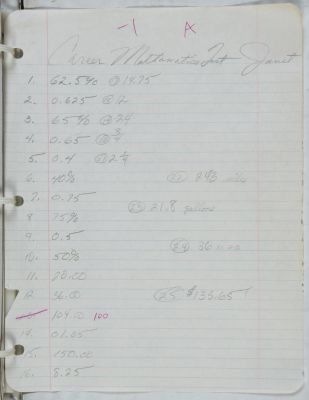 -1 A
Career Mathematics Test Janet
1. 62.5% @ 14.75
2. 0.625 @ 12
3. 65% @ 24
4. 0.65 @ 3/4
5. 0.4 @ 2 1/4
6. 40% 22 298
7. 0.75
23 21.8 gallons
8 75%
9. 0.5
24 36
10. 50%
11. 28.00
12 36.00 25 $135.65
13. 104.00 100
14. 01.05
15. 150.00
16. 8.25